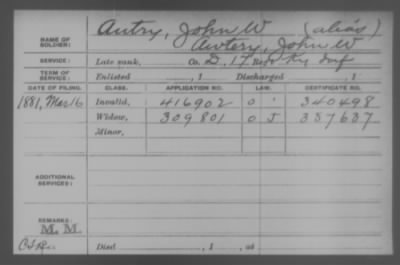 Autry, John W (alias)
NAME OF SOLDIER: Awtery, John W
SERVICE: Late rank, Co. D, 17 Reg't Ky Inf
TERM OF SERVICE: Enlisted , 1 Discharged , 1
DATE OF FILING. CLASS. APPLICATION NO. LAW. CERTIFICATE NO.
1881, Mar 16 Invalid, 416902 340498
Widow, 309801 337637
Minor,
ADDITIONAL SERVICES:
REMARKS:
M. M.
Died , 1 , at